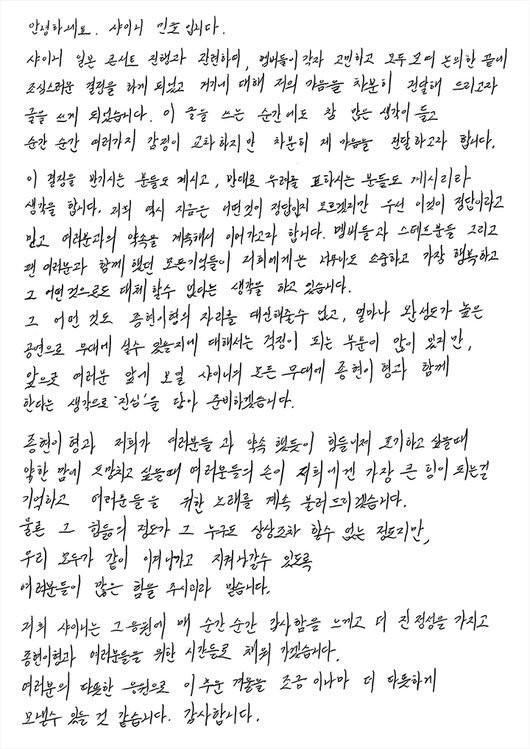 안녕하세요. 샤이니 민호입니다.
샤이니 일본 콘서트 진행과 관련하여, 멤버들이 각자 고민하고 모두 모여 논의한 끝에
조심스러운 결정을 하게 되었고 거기에 대해 저의 마음을 차분히 전달해 드리고자
글을 쓰게 되었습니다. 이 글을 쓰는 순간에도 참 많은 생각이 들고
순간 순간 여러가지 감정이 교차하지만 차분히 제 마음을 전달하고자 합니다.
이 결정을 반기시는 분들도 계시고, 반대로 우려를 표하시는 분들도 계시리라
생각을 합니다. 저희 역시 지금은 어떤것이 정답인지 모르겠지만 우선 이것이 정답이라고
믿고 여러분과의 약속을 계속해서 이어가고자 합니다. 멤버들과 스태프분들 그리고
팬 여러분과 함께 했던 모든기억들이 저희에게는 너무나도 소중하고 가장 행복하고
그 어떤 것으로도 대체 할수 없다는 생각을 하고 있습니다.
그 어떤 것도 종현이형의 자리를 대신해줄수 없고, 얼마나 완성도가 높은
공연으로 무대에 설수 있을지에 대해서는 걱정이 되는 부분이 많이 있지만,
앞으로 여러분 앞에 보일 샤이니의 모든 무대에 종현이 형과 함께
한다는 생각으로 '진심'을 담아 준비하겠습니다.
종현이 형과 저희가 여러분들과 약속 했듯이 힘들어서 포기하고 싶을때
약한 맘에 도망치고 싶을때 여러분들의 손이 저희에겐 가장 큰 힘이 되는걸
기억하고 여러분들을 위한 노래를 계속 불러드리겠습니다.
물론 그 힘듦의 정도가 그 누구도 상상조차 할수 없는 정도지만,
우리 모두가 같이 이겨나가고 지켜나갈수 있도록
여러분들이 많은 힘을 주시리라 믿습니다.
저희 샤이니는 그 응원에 매 순간 순간 감사함을 느끼고 더 진정성을 가지고
종현이형과 여러분들을 위한 시간들로 채워 가겠습니다.
여러분의 따뜻한 응원으로 이 추운 겨울을 조금 이나마 더 따듯하게
보낼수 있을 것 같습니다. 감사합니다.